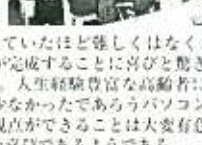 ていたほど難しくはなく
が完成することに喜びと驚き
。人生経験豊富な高齢者に
少なかったであろうパソコン
視点ができることは大変有意
喜びであるようである